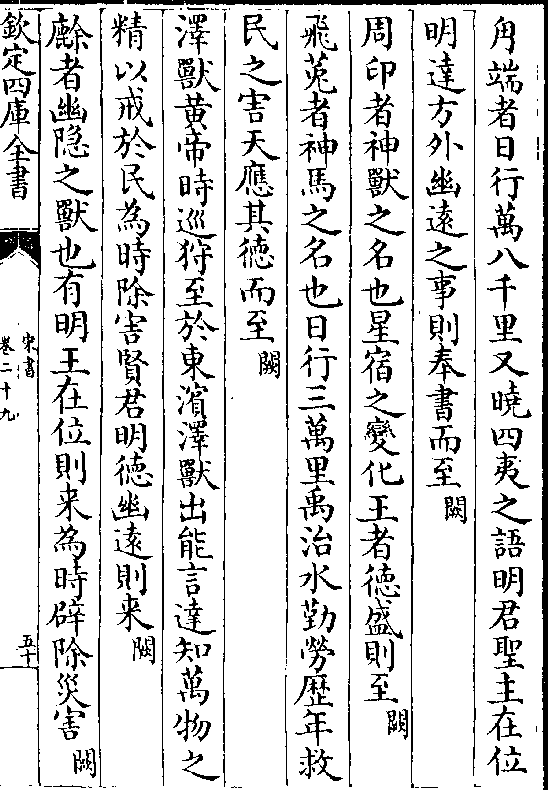 角端者日行萬八千里又曉四夷之語明君聖主在位
明達方外幽遠之事則奉書而至闕
周印者神獸之名也星宿之變化王者德盛則至闕
飛菟者神馬之名也日行三萬里禹治水勤勞歷年救
民之害天應其德而至闕
澤獸黃帝時巡狩至於東濵澤獸出能言達知萬物之
精以戒於民為時除害賢君明德幽遠則来闕
者幽隐之獸也有明王在位則来為時辟除災害闕
欽定四庫全書
宋書
卷二十九
五十